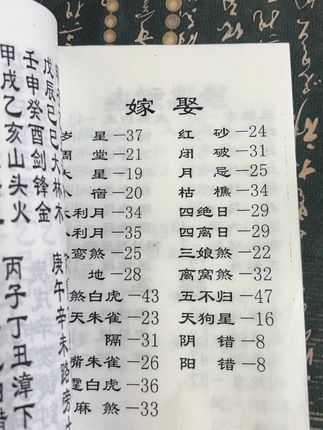 嫁 娶
星—37 红 砂—24
堂—21 闭 破—31
星—19 月 忌—25
宿—20 枯 樵—34
利月—34 四绝日—29
利月—35 四离日—29
鸾煞—25 三娘煞—22
地—28 离窝煞—32
煞白虎—43 五不归—47
天朱雀—30 天狗星—16
隔—31 阴 错—8
嘴朱雀—26 阳 错—8
白虎—36
麻煞—33
戊辰己巳大林木 庚午辛未路旁
壬申癸酉剑锋金
甲戌乙亥山头火 丙子丁丑漳下